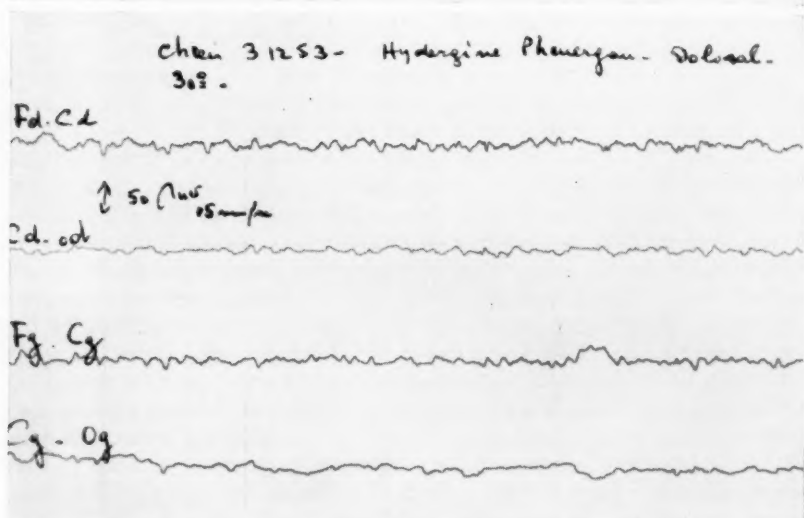 Chien 31253 - Hydergine Phenergan - Dolosal -
30° -
Fd. Cd
50 μv
Cd. od
Fg. Cg
Cg - Og